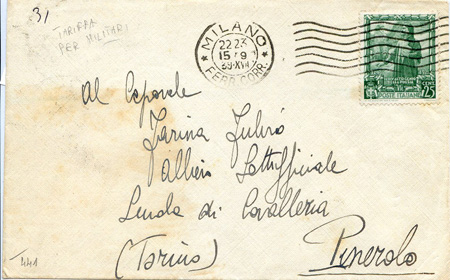 31
TARIFFA
PER MILITARI
MILANO
22 23
15 9
38-XVI
FERR. CORR.
POSTE ITALIANE
25
Al Caporale
Farina Fulvio
Allievo Sottufficiale
Scuola di Cavalleria
(Torino) Pinerolo
441